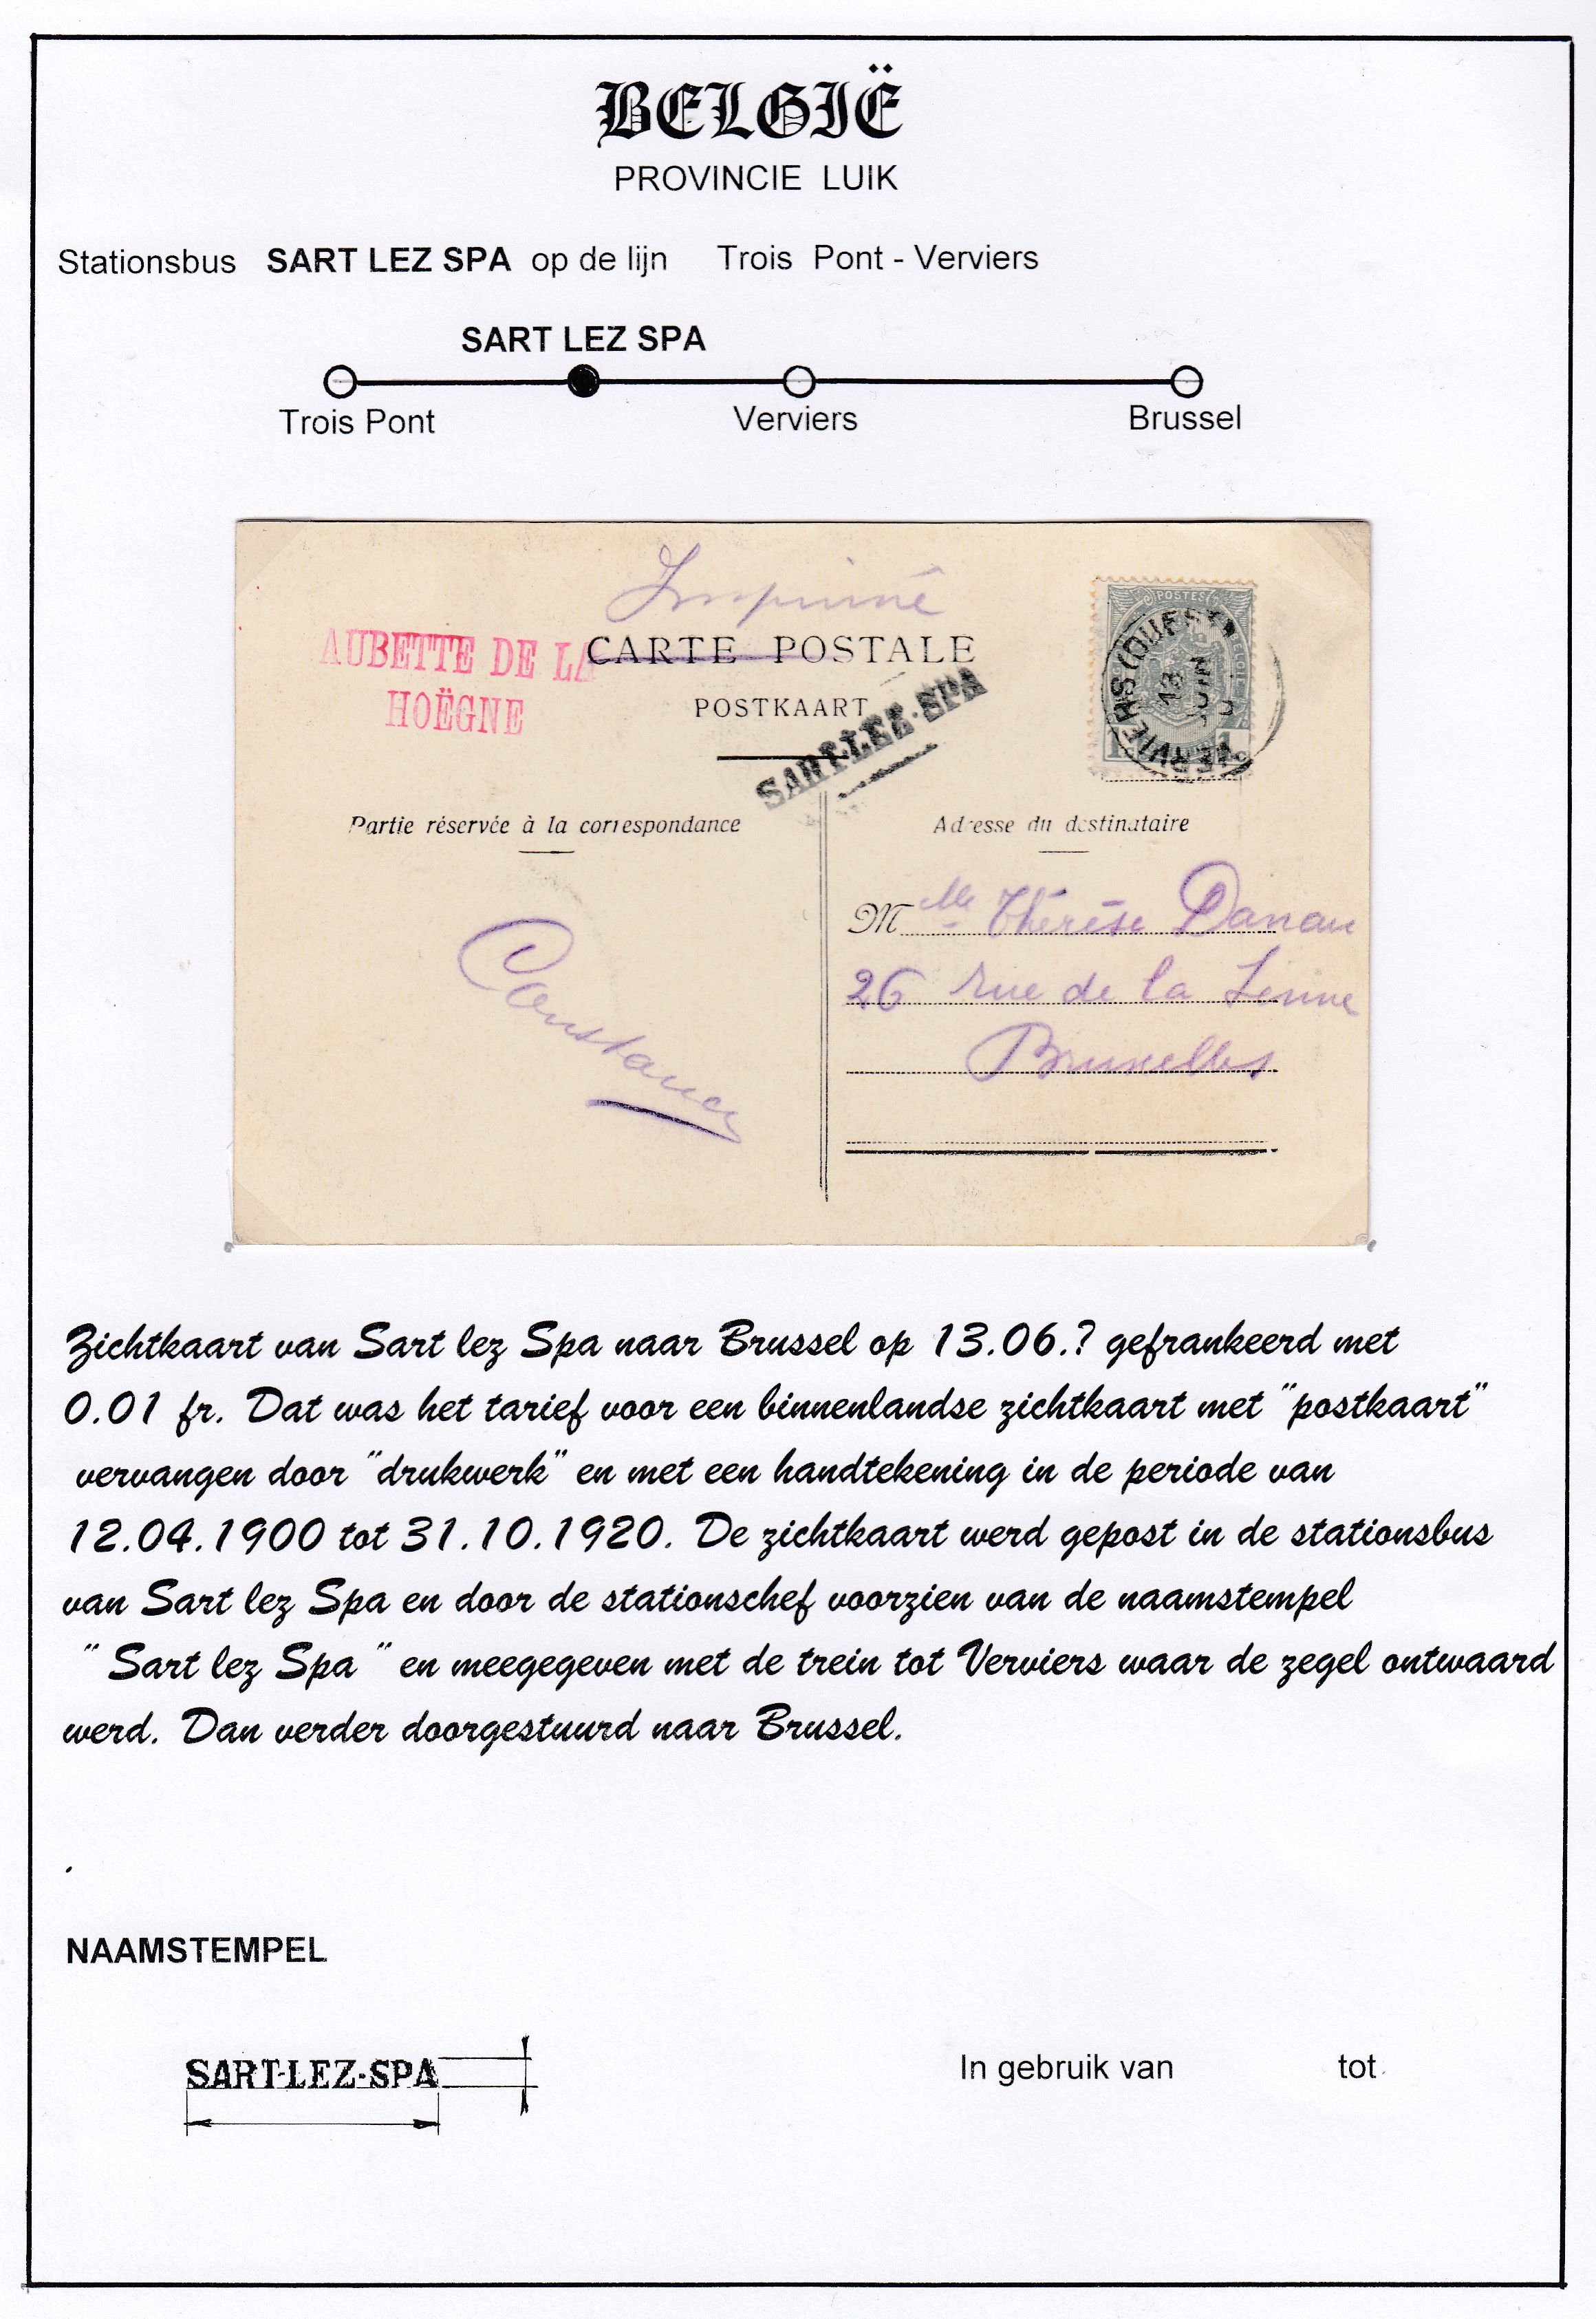 BELGIË
PROVINCIE LUIK
Stationsbus SART LEZ SPA op de lijn Trois Pont - Verviers
SART LEZ SPA
Trois Pont Verviers Brussel
Imprimé
AUBETTE DE LA
HOËGNE
CARTE POSTALE
POSTKAART
SART-LEZ-SPA
POSTES
BELGIE
VERVIERS (OUEST)
13
JUIN
Partie réservée à la correspondance
Adresse du destinataire
Mlle Thérèse Danau
26 rue de la Senne
Bruxelles
Constance
Zichtkaart van Sart lez Spa naar Brussel op 13.06.? gefrankeerd met
0.01 fr. Dat was het tarief voor een binnenlandse zichtkaart met "postkaart"
vervangen door "drukwerk" en met een handtekening in de periode van
12.04.1900 tot 31.10.1920. De zichtkaart werd gepost in de stationsbus
van Sart lez Spa en door de stationschef voorzien van de naamstempel
" Sart lez Spa " en meegegeven met de trein tot Verviers waar de zegel ontwaard
werd. Dan verder doorgestuurd naar Brussel.
NAAMSTEMPEL
SART-LEZ-SPA
In gebruik van tot